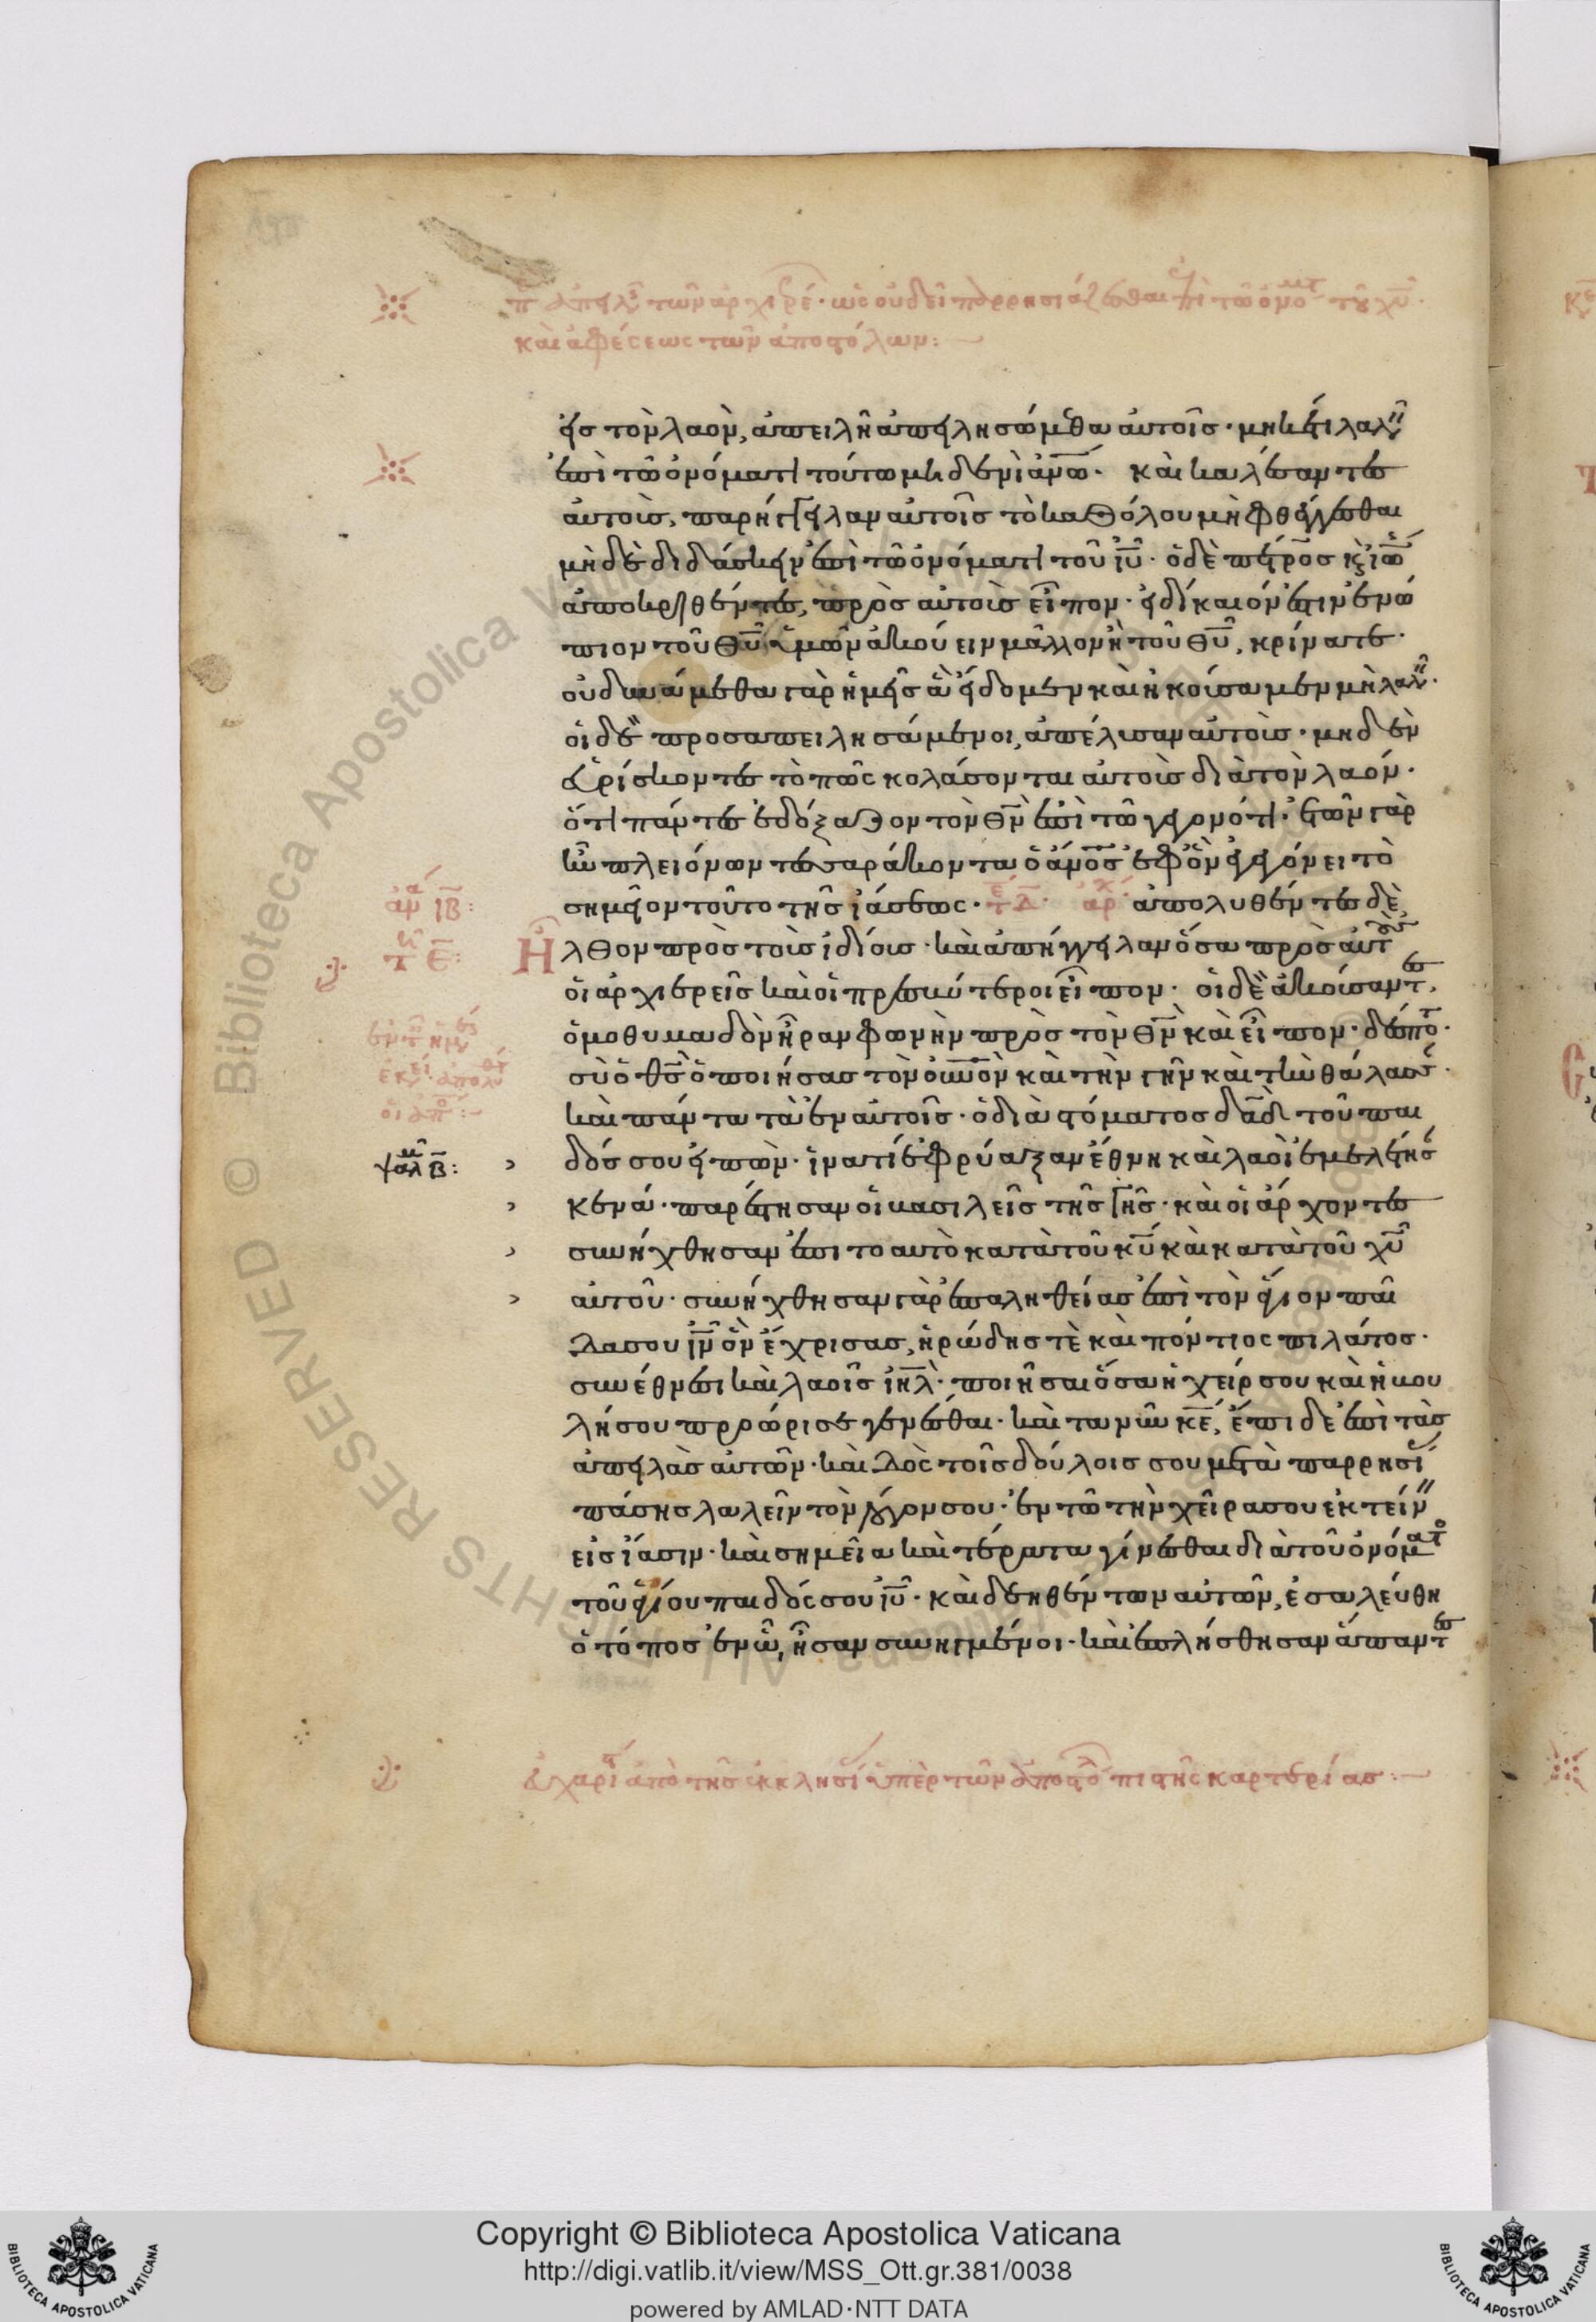 καὶ ἀφέσεως τῶν ἀποστόλων:
εἰς τὸν λαὸν, ἀπειλῆ ἀπειλησώμεθα αὐτοῖς· μηκέτι λαλεῖν
ἐπὶ τῶ ὀνόματι τούτω μηδενὶ ἀνω̅· καὶ καλέσαντες
αὐτοὺς, παρήγγειλαν αὐτοῖς τὸ καθόλου μὴ φθέγγεσθαι
μὴ δὲ διδάσκειν ἐπὶ τῶ ὀνόματι τοῦ ιυ̅· ὁ δὲ πέτρος κ(αὶ) ἰω̅
ἀποκριθέντες, πρὸς αὐτοὺς εἶπον· εἰ δίκαιόν ἐστιν ἐνώ
πιον τοῦ θυ̅ ὑμῶν ἀκούειν μᾶλλον ἢ τοῦ θυ̅, κρίνατε·
οὐ δυνάμεθα γὰρ ἡμεῖς ἃ εἴδομεν καὶ ἠκούσαμεν μὴ λαλεῖν·
οἱ δὲ προσαπειλησάμενοι, ἀπέλυσαν αὐτοὺς· μηδὲν
εὑρίσκοντες τὸ πῶς κολάσονται αὐτοὺς διὰ τὸν λαόν·
ὅτι πάντες ἐδόξαζον τὸν θν̅ ἐπὶ τῶ γεγονότι· ἐτῶν γὰρ
ἦν πλειόνων τεσσαράκοντα ὁ ἀνο̅ς ἐφ ὃν ἐγεγόνει τὸ
σημεῖον τοῦτο τῆς ἰάσεως· ἀπολυθέντες δὲ
ἦλθον πρὸς τοὺς ἰδίους· καὶ ἀπήγγειλαν ὅσα πρὸς αὐτοὺς
οἱ ἀρχιερεῖς καὶ οἱ πρεσβύτεροι εἶπον· οἱ δὲ ἀκούσαντες,
ὁμοθυμαδὸν ἦραν φωνὴν πρὸς τὸν θν̅ καὶ εἶπον· δέσποτ·
σὺ ὁ θς̅ ὁ ποιήσας τὸν οὐνο̅ν καὶ τὴν γῆν καὶ τὴν θάλασσ·
καὶ πάντα τὰ ἐν αὐτοῖς· ὁ διὰ στόματος δα̅δ τοῦ παι
ψαλμ β̅: δός σου εἰπὼν· ἱνατί ἐφρύαξαν ἔθνη καὶ λαοὶ ἐμελέτησ
κενά· παρέστησαν οἱ βασιλεῖς τῆς γῆς· καὶ οἱ ἄρχοντες
συνήχθησαν ἐπι το αυτὸ κατὰ τοῦ κυ̅ καὶ κατὰ τοῦ χυ̅
αὐτοῦ· συνήχθησαν γὰρ ἐπαληθείας ἐπὶ τὸν ἅγιον παῖ
δα σου ιν̅ ὃν ἔχρισας, ἡρώδης τὲ καὶ πόντιος πιλάτος·
συν ἔθνεσι καὶ λαοῖς ιη̅λ· ποιῆσαι ὅσα ἡ χείρ σου καὶ ἡ βου
λή σου προώρισε γενέσθαι· καὶ τανῦν κε̅, ἔπιδε ἐπὶ τὰς
ἀπειλὰς αὐτῶν· καὶ δὸς τοῖς δούλοις σου μετὰ παρρησί
πάσης λαλεῖν τὸν λόγον σου· ἐν τῶ τὴν χεῖρα σου ἐκτείν
εἰς ἴασιν· καὶ σημεῖα καὶ τέρατα γίνεσθαι διὰ τοῦ ὀνόματ
τοῦ ἁγίου παιδός σου ιυ̅· καὶ δεηθέντων αὐτῶν, ἐσαλεύθη
ὁ τόπος ἐν ὧ, ἦσαν συνηγμένοι· καὶ ἐπλήσθησαν ἅπαντες
εὐχαριστί ἀπὸ τῆς ἐκκλησί ὑπὲρ τῶν ἀποστό πιστῆς καρτερίας:
Copyright © Biblioteca Apostolica Vaticana
http://digi.vatlib.it/view/MSS_Ott.gr.381/0038
powered by AMLAD·NTT DATA